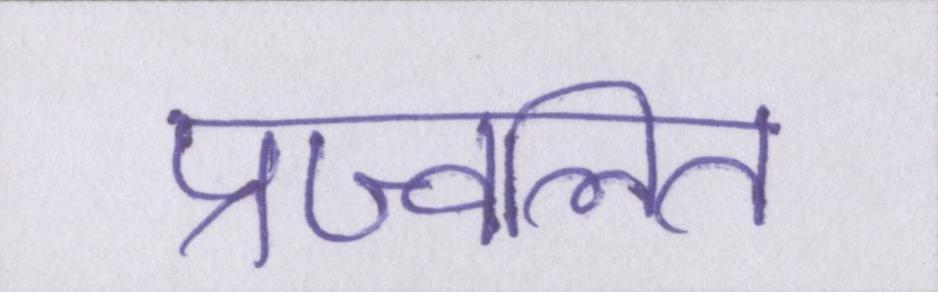 प्रज्वलित